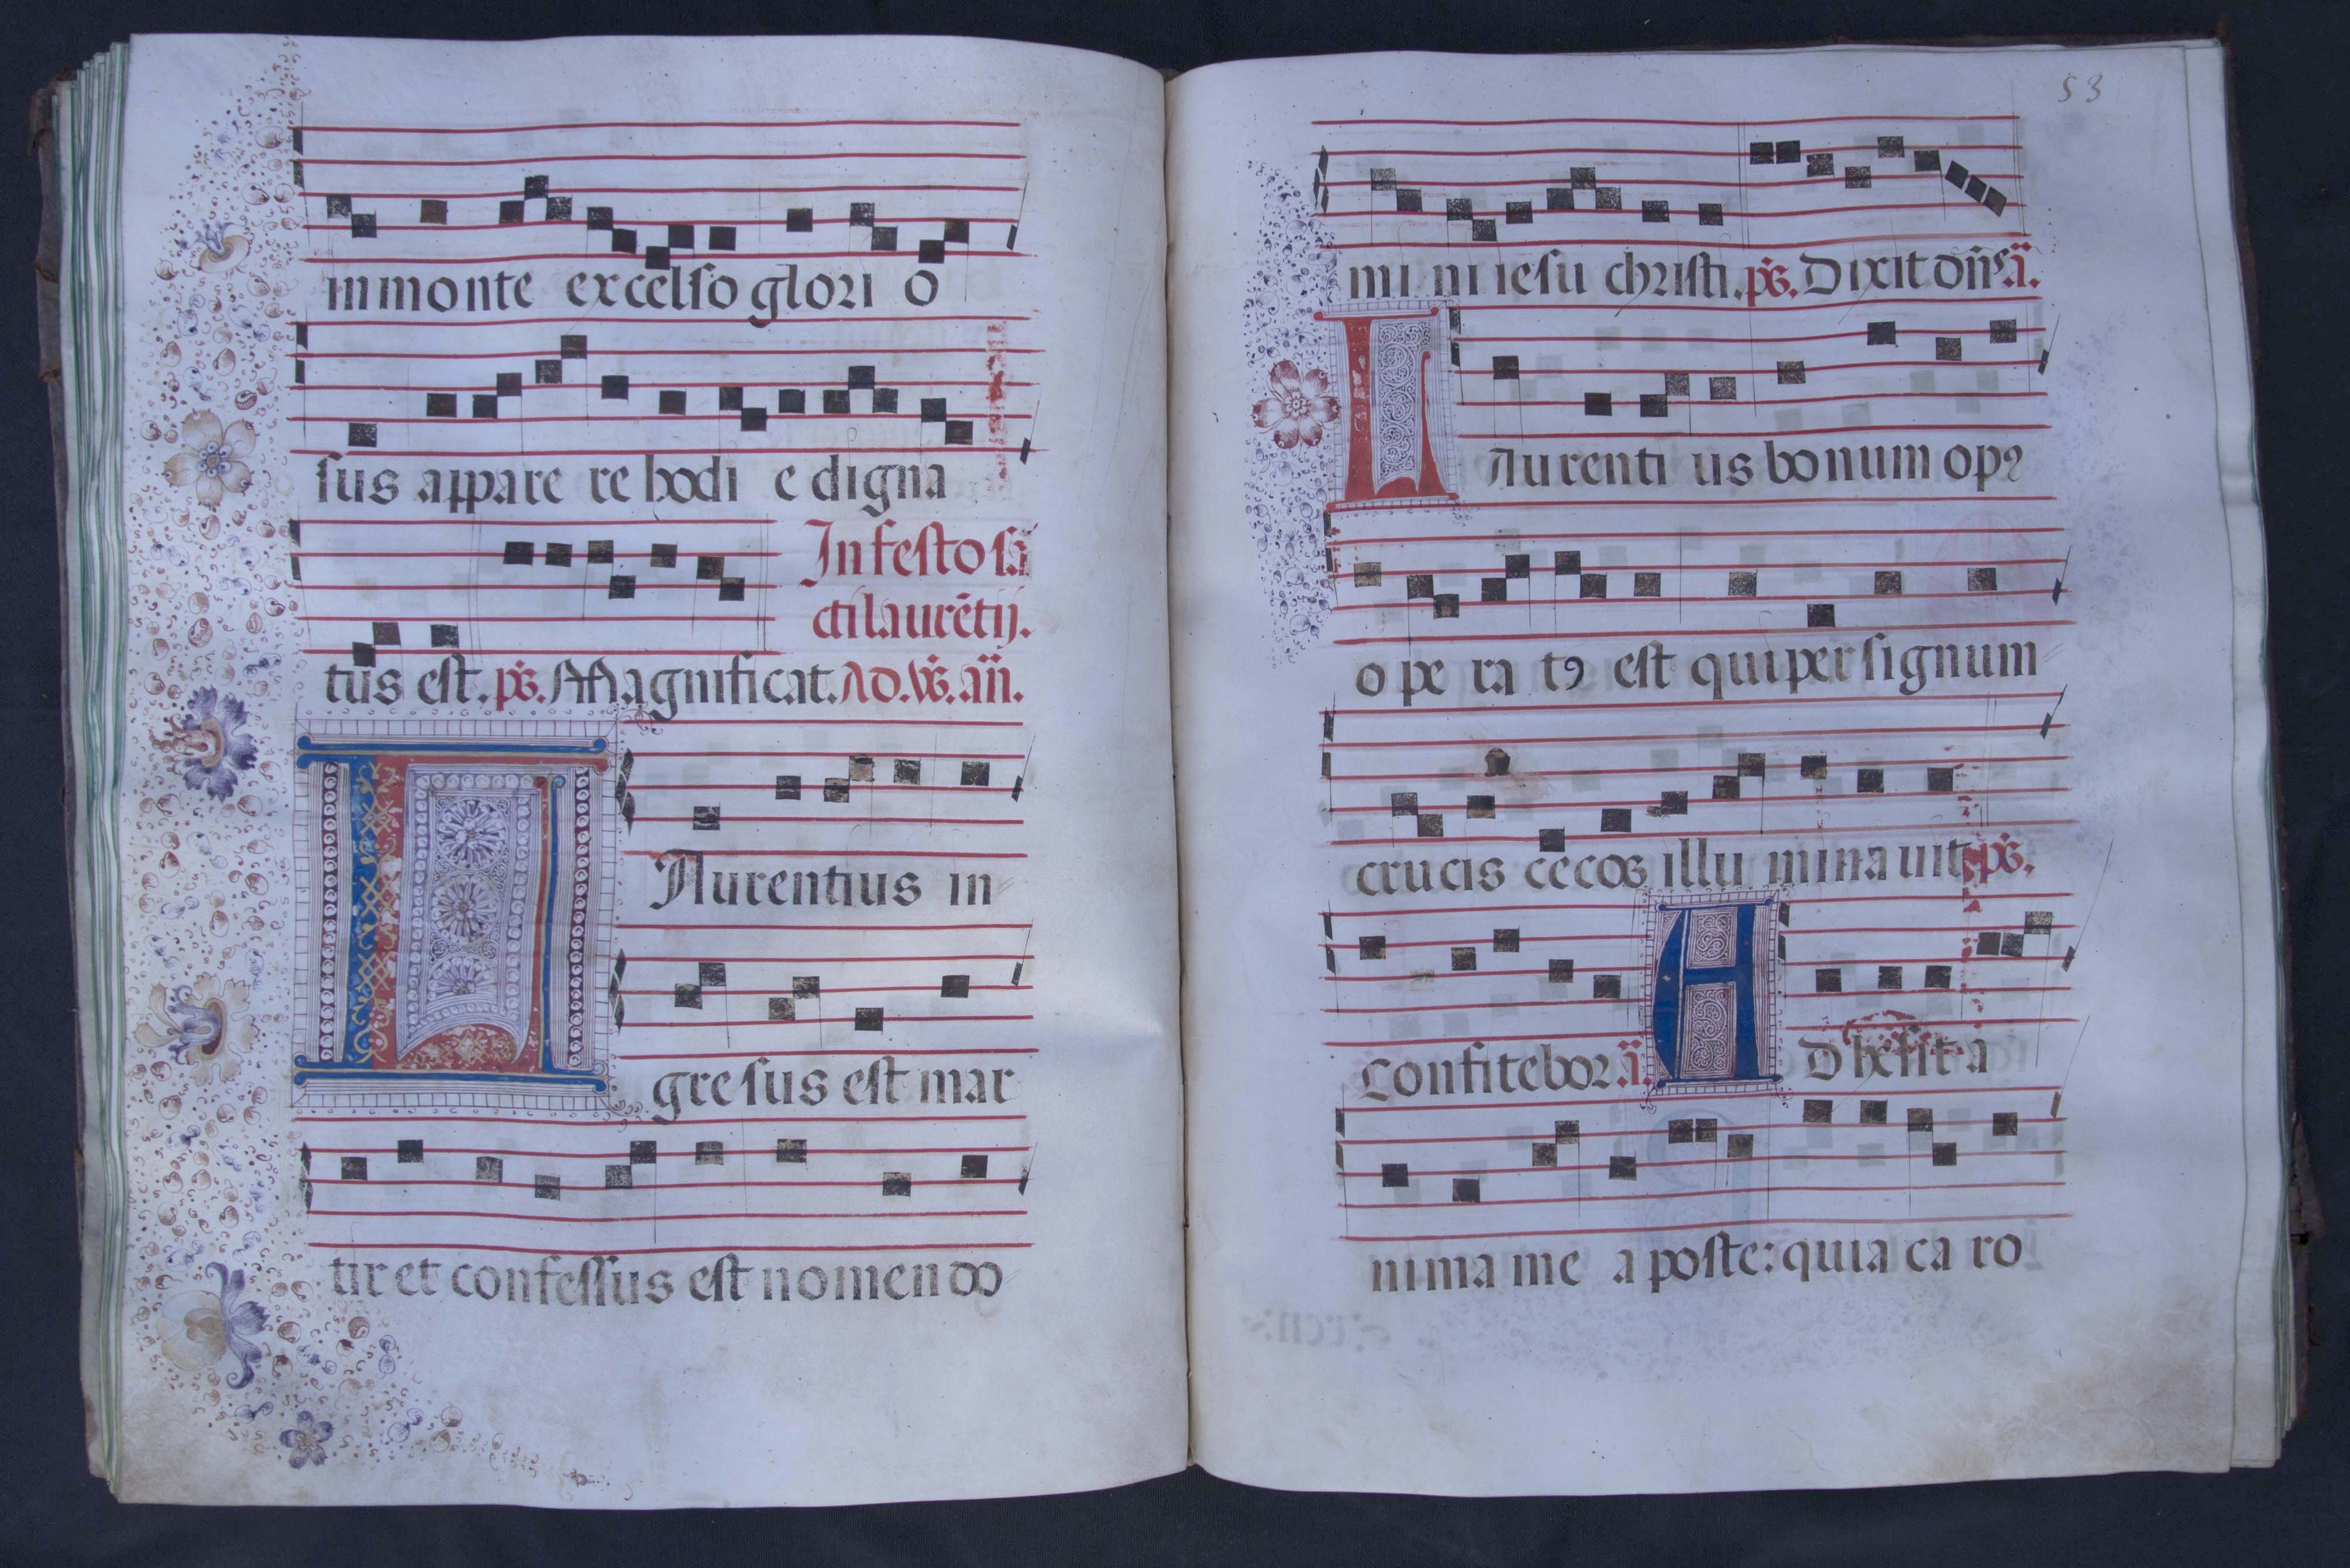 in monte excelso glori o
sus appare re hodi e digna
In festo sā
cti laurētij.
tus est. pš. Magnificat. Ad. vš. añ.
LAurentius in
gresus est mar
tir et confessus est nomen do
53
mi ni iesu christi. pš. Dixit dñs. ā.
LAurenti us bonum opꝰ
o pe ra tꝰ est qui per signum
crucis cecos illu mina uit pš.
Confitebor. ā. ADhesit a
nima me a poste: quia ca ro